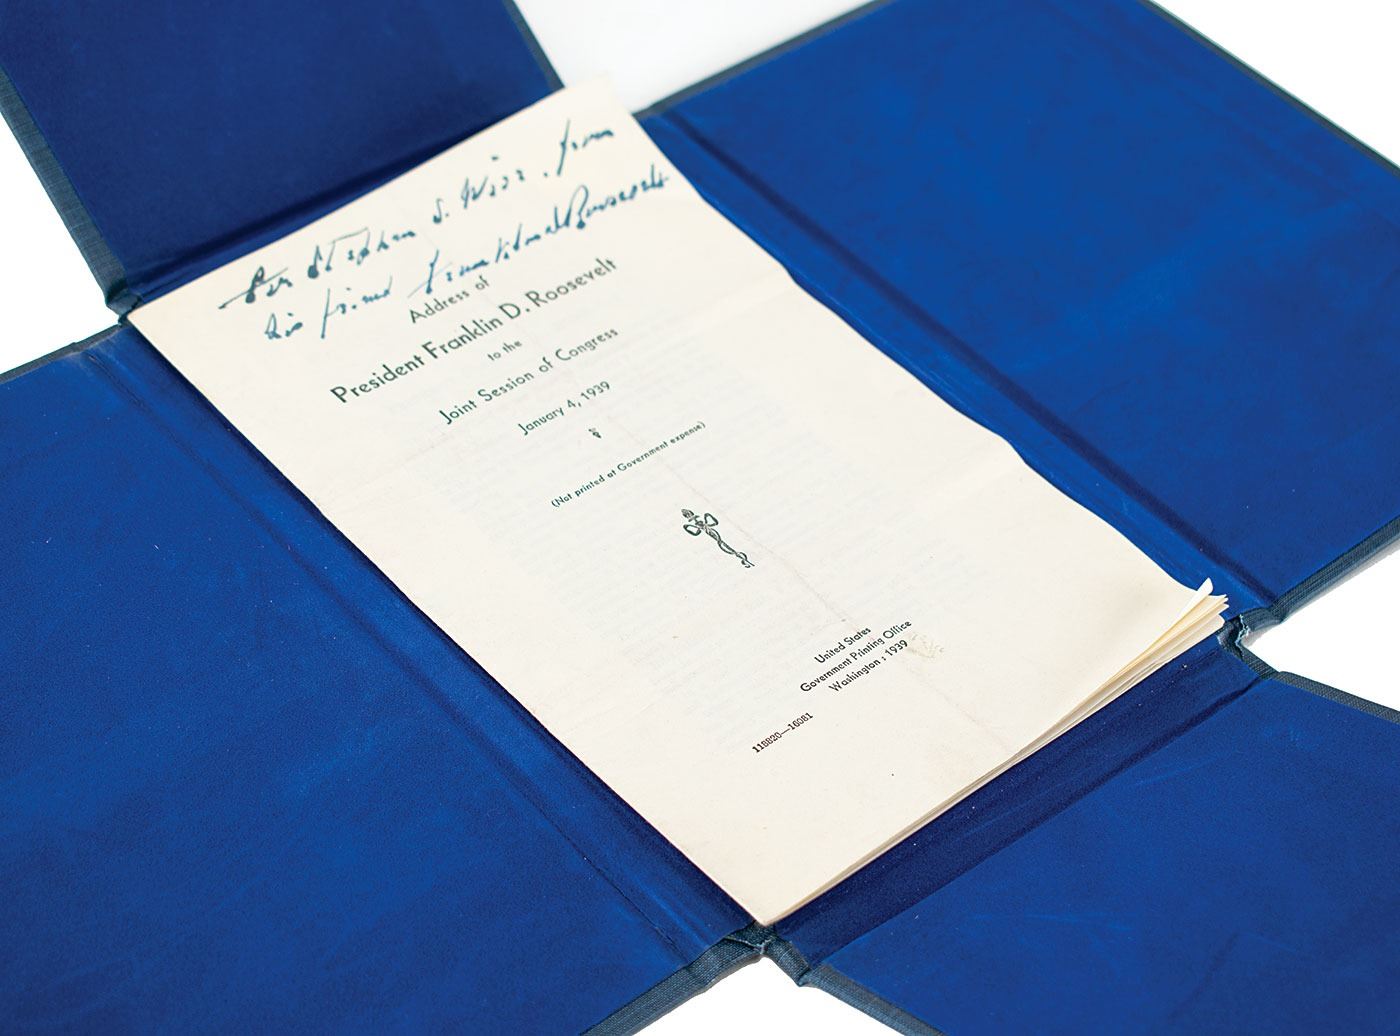 For Stephen S. Wise, from
his friend Franklin D. Roosevelt
Address of
President Franklin D. Roosevelt
to the
Joint Session of Congress
January 4, 1939
(Not printed at Government expense)
United States
Government Printing Office
Washington : 1939
118820—16081